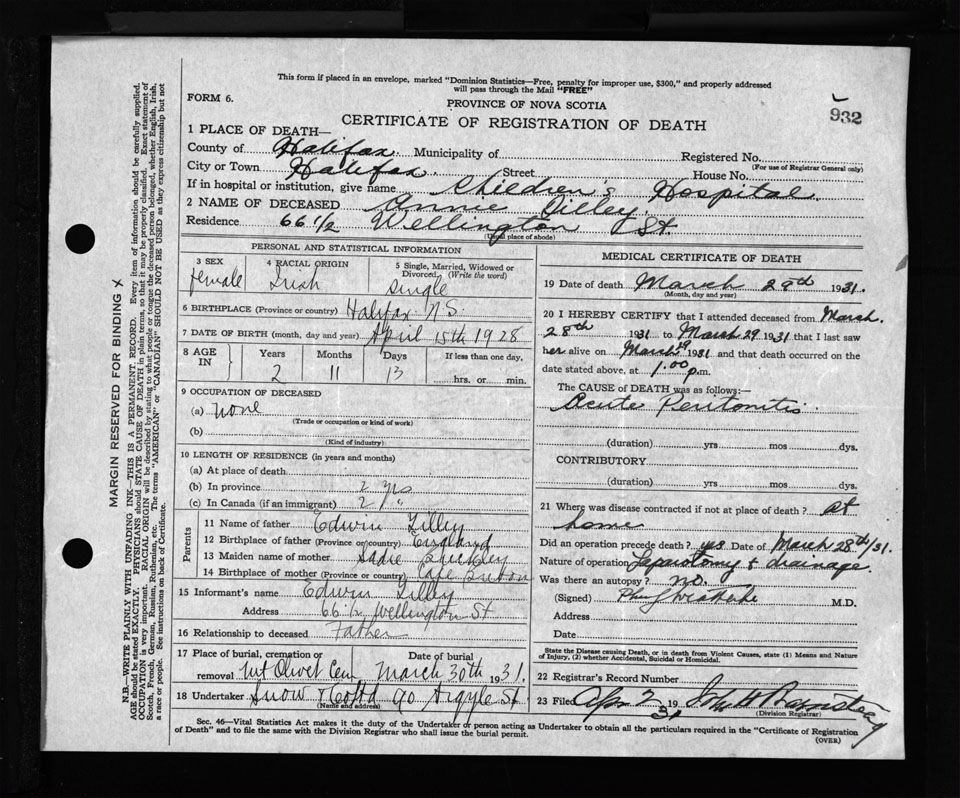 This form if placed in an envelope, marked "Dominion Statistics—Free, penalty for improper use, $300," and properly addressed
will pass through the Mail "FREE"
FORM 6.
PROVINCE OF NOVA SCOTIA
932
CERTIFICATE OF REGISTRATION OF DEATH
1 PLACE OF DEATH—
County of Halifax Municipality of Registered No.
(For use of Registrar General only)
City or Town Halifax Street House No.
If in hospital or institution, give name Children's Hospital
2 NAME OF DECEASED Annie Lilley
Residence 66 1/2 Wellington St.
(Usual place of abode)
PERSONAL AND STATISTICAL INFORMATION
3 SEX 4 RACIAL ORIGIN 5 Single, Married, Widowed or
Divorced, (Write the word)
female Irish single
6 BIRTHPLACE (Province or country) Halifax N.S.
7 DATE OF BIRTH (month, day and year) April 15th 1928
8 AGE IN Years Months Days If less than one day,
2 11 13 hrs. or min.
9 OCCUPATION OF DECEASED
(a) None
(Trade or occupation or kind of work)
(b)
(Kind of industry)
10 LENGTH OF RESIDENCE (in years and months)
(a) At place of death
(b) In province 2 yrs
(c) In Canada (if an immigrant) 2 "
Parents
11 Name of father Edwin Lilley
12 Birthplace of father (Province or country) England
13 Maiden name of mother Sadie
14 Birthplace of mother (Province or country) Cape Breton
15 Informant's name Edwin Lilley
Address 66 1/2 Wellington St
16 Relationship to deceased Father
17 Place of burial, cremation or removal Date of burial
Mt Olivet Cem March 30th 1931.
18 Undertaker Snow & Co Ltd 90 Argyle St
(Name and address)
MEDICAL CERTIFICATE OF DEATH
19 Date of death March 29th 1931.
(Month, day and year)
20 I HEREBY CERTIFY that I attended deceased from March
28th 1931 to March 29 1931 that I last saw
her alive on March 29 1931 and that death occurred on the
date stated above, at 1.00 p.m.
The CAUSE OF DEATH was as follows:—
Acute Peritonitis
(duration) yrs mos dys.
CONTRIBUTORY
(duration) yrs mos dys.
21 Where was disease contracted if not at place of death? at
home
Did an operation precede death? yes Date of March 28th/31.
Nature of operation Laparotomy & drainage.
Was there an autopsy? no.
(Signed) M.D.
Address
Date
State the Disease causing Death, or in death from Violent Causes, state (1) Means and Nature
of Injury, (2) whether Accidental, Suicidal or Homicidal.
22 Registrar's Record Number
23 Filed Apr 2 1931 John W
(Division Registrar)
Sec. 46—Vital Statistics Act makes it the duty of the Undertaker or person acting as Undertaker to obtain all the particulars required in the "Certificate of Registration
of Death" and to file the same with the Division Registrar who shall issue the burial permit.
(OVER)
MARGIN RESERVED FOR BINDING X
N.B.—WRITE PLAINLY WITH UNFADING INK—THIS IS A PERMANENT RECORD. Every item of information should be carefully supplied.
AGE should be stated EXACTLY. PHYSICIANS should STATE CAUSE OF DEATH in plain terms, so that it may be properly classified. Exact statement of
OCCUPATION is very important. RACIAL ORIGIN will be described by stating to what people or tongue the deceased person belonged, whether English, Irish,
Scotch, French, German, Russian, Ruthenian, etc. The terms "AMERICAN" or "CANADIAN" SHOULD NOT BE USED as they express citizenship but not
a race or people. See instructions on back of Certificate.